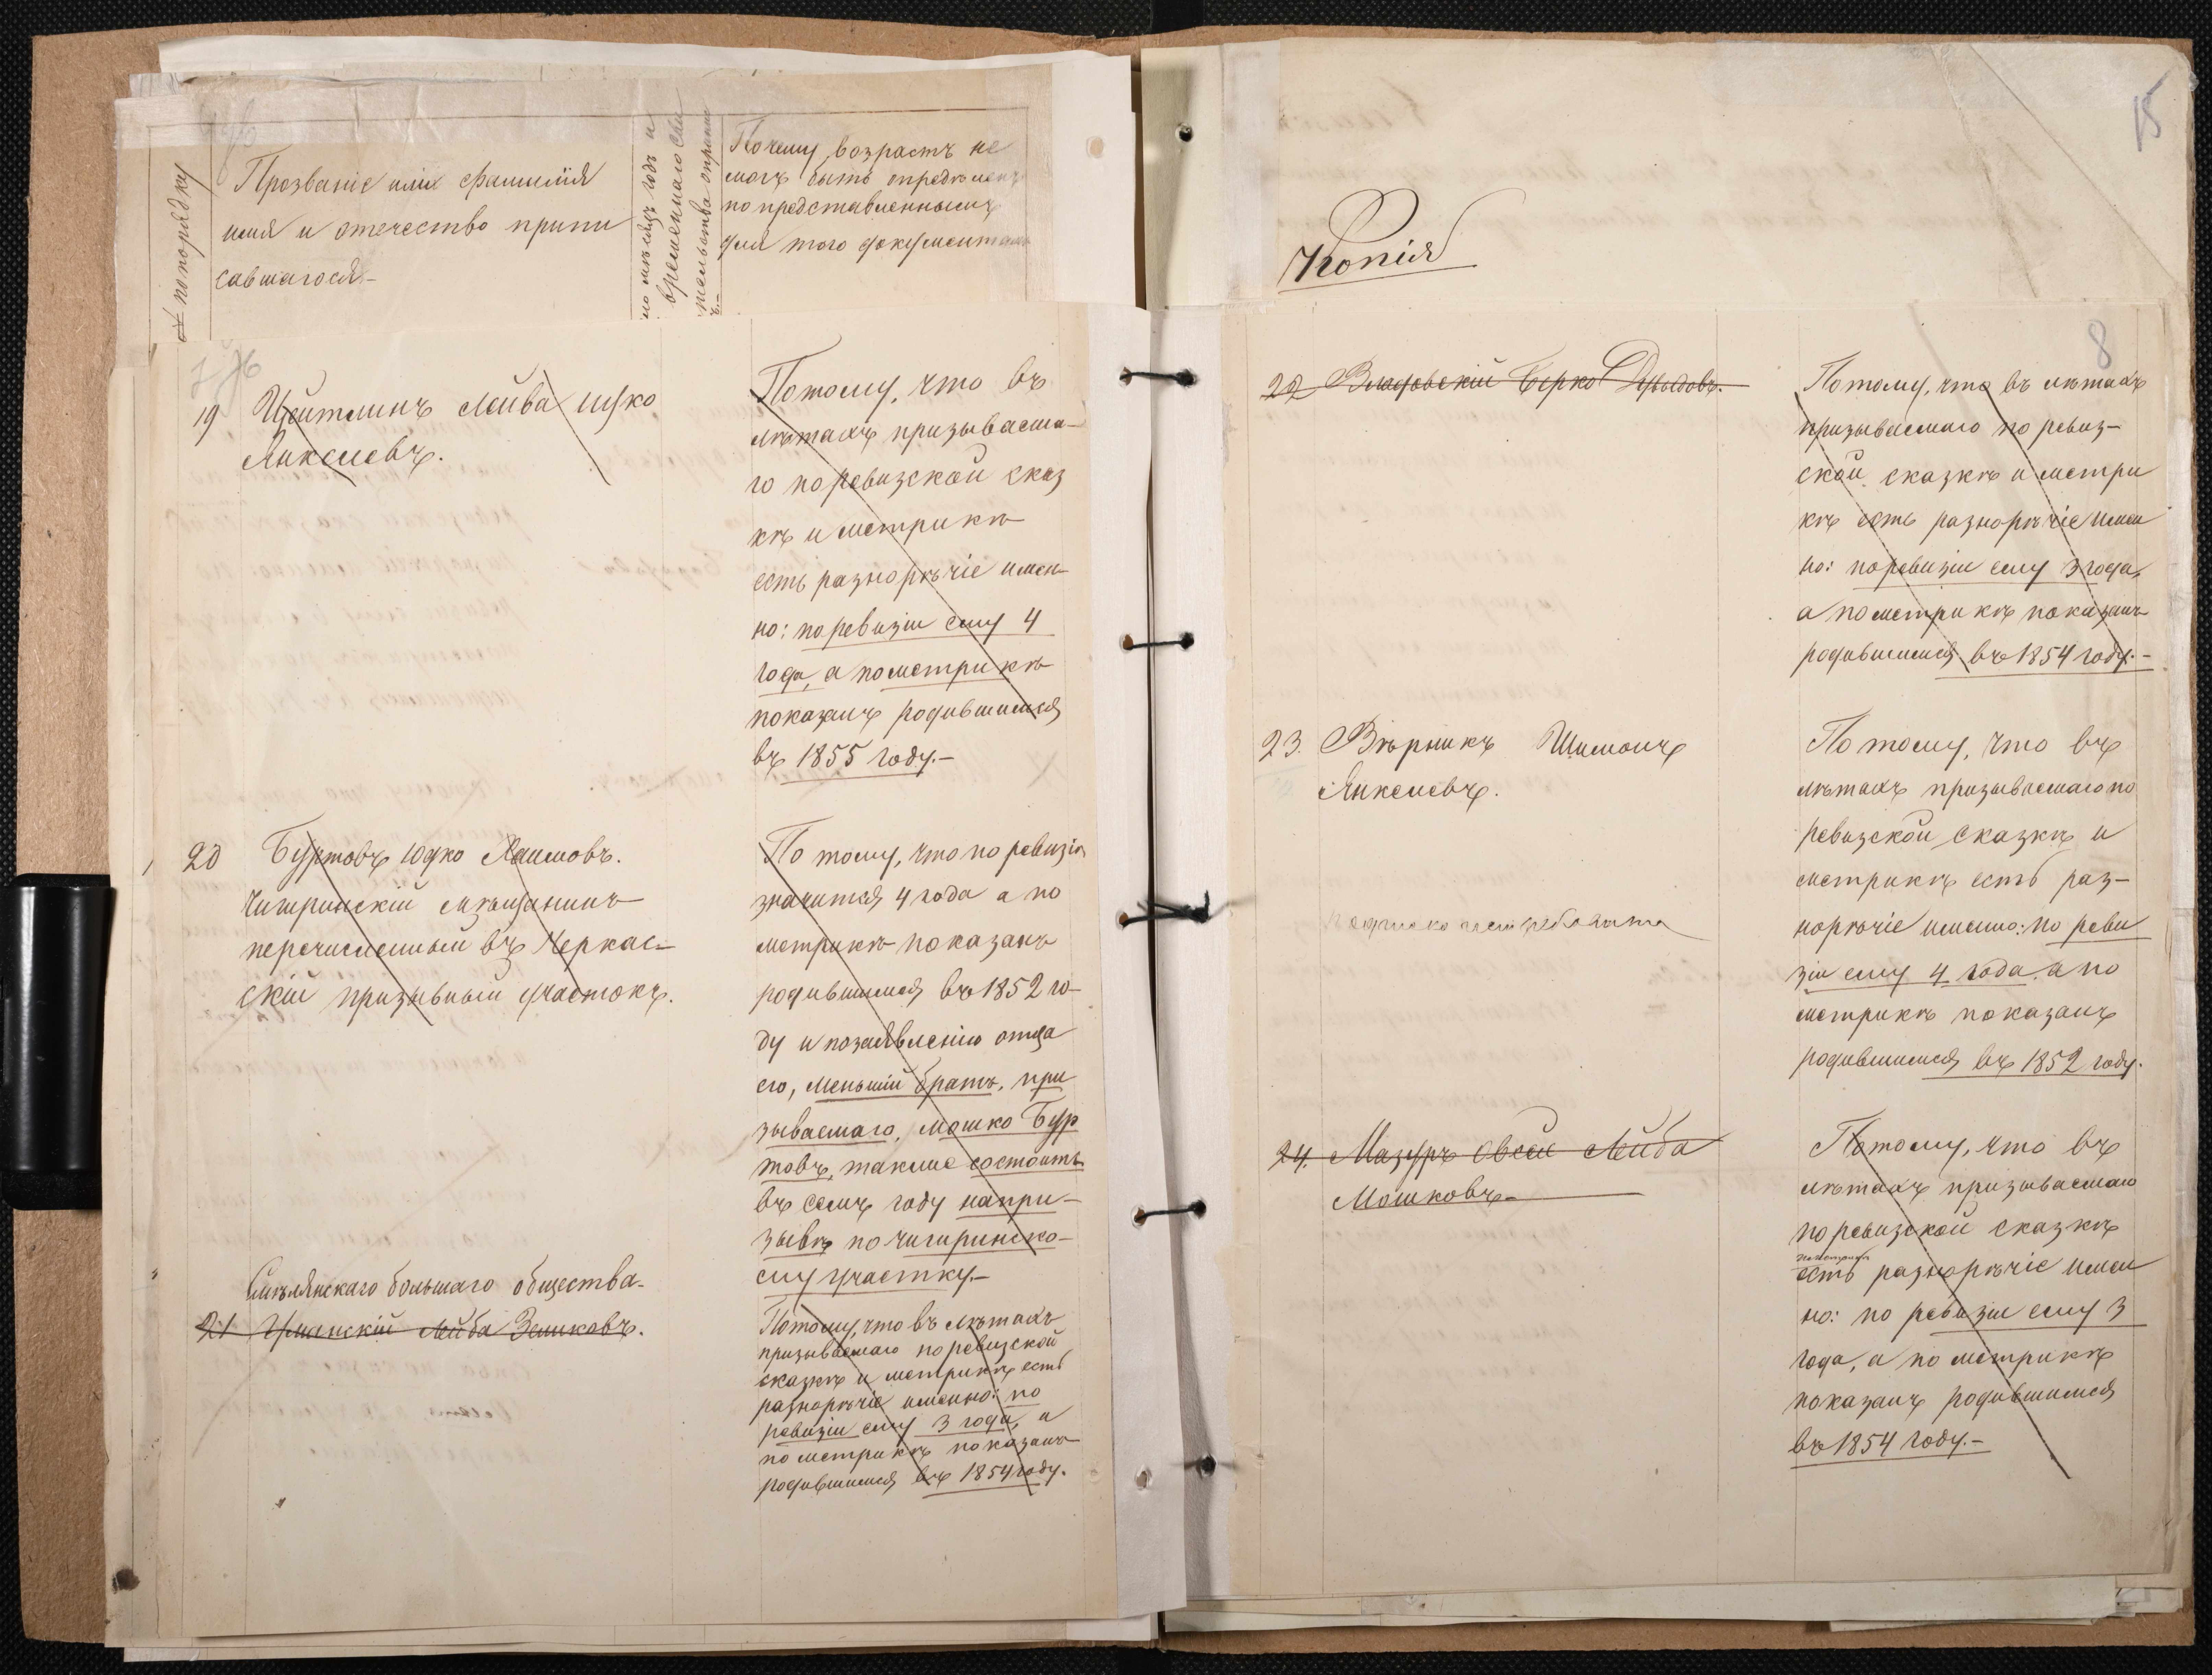 № по порядку
Прозваніе или фамилія
имя и отечество припи
савшагося.-
мѣсяцъ годъ и
временнаго сви
Почему, возрастъ не
могъ быть опредѣленъ
по представленнымъ
для того документамъ
19 Цейтлинъ Лейба Ицко
Янкелевъ.
Потому, что въ
лѣтахъ призываема-
го по ревизской сказ
кѣ и метрикѣ
есть разнорѣчіе имен-
но: по ревизіи ему 4
года, а по метрикѣ
показанъ родившимся
въ 1855 году.-
20 Буртовъ Юдко Хаимовъ.
Чигиринскій мѣщанинъ
перечисленный въ Черкас-
скій призывный участокъ.
По тому, что по ревизіи
значится 4 года а по
метрикѣ показанъ
родившимся въ 1852 го-
ду и по заявленію отца
его, меньшій братъ, при
зываемаго, Мошко Бур
товъ, также состоитъ
въ семъ году на при-
зывѣ по чигиринско-
му участку.-
Смѣлянскаго большаго общества.
21 Уманскій Лейба Зеликовъ.
Потому, что въ лѣтахъ
призываемаго по ревизской
сказкѣ и метрикѣ есть
разнорѣчіе именно: по
ревизіи ему 3 года, а
по метрикѣ показанъ
родившимся въ 1854 году.
15
Копія
8
22 Берко Дувидовъ.
Потому, что въ лѣтахъ
призываемаго по ревиз-
ской сказкѣ и метри
кѣ есть разнорѣчіе имен
но: по ревизіи ему 3 года,
а по метрикѣ показанъ
родившимся въ 1854 году.-
23. Вѣрникъ Шимонъ
Янкелевъ.
Потому, что въ
лѣтахъ призываемаго по
ревизской сказкѣ и
метрикѣ есть раз-
норѣчіе именно: по реви
зіи ему 4 года, а по
метрикѣ показанъ
родившимся въ 1852 году.
24. Мазуръ Овсей Лейба
Мошковъ-
Потому, что въ
лѣтахъ призываемаго
по ревизской сказкѣ
есть разнорѣчіе имен
но: по ревизіи ему 3
года, а по метрикѣ
показанъ родившимся
въ 1854 году.-